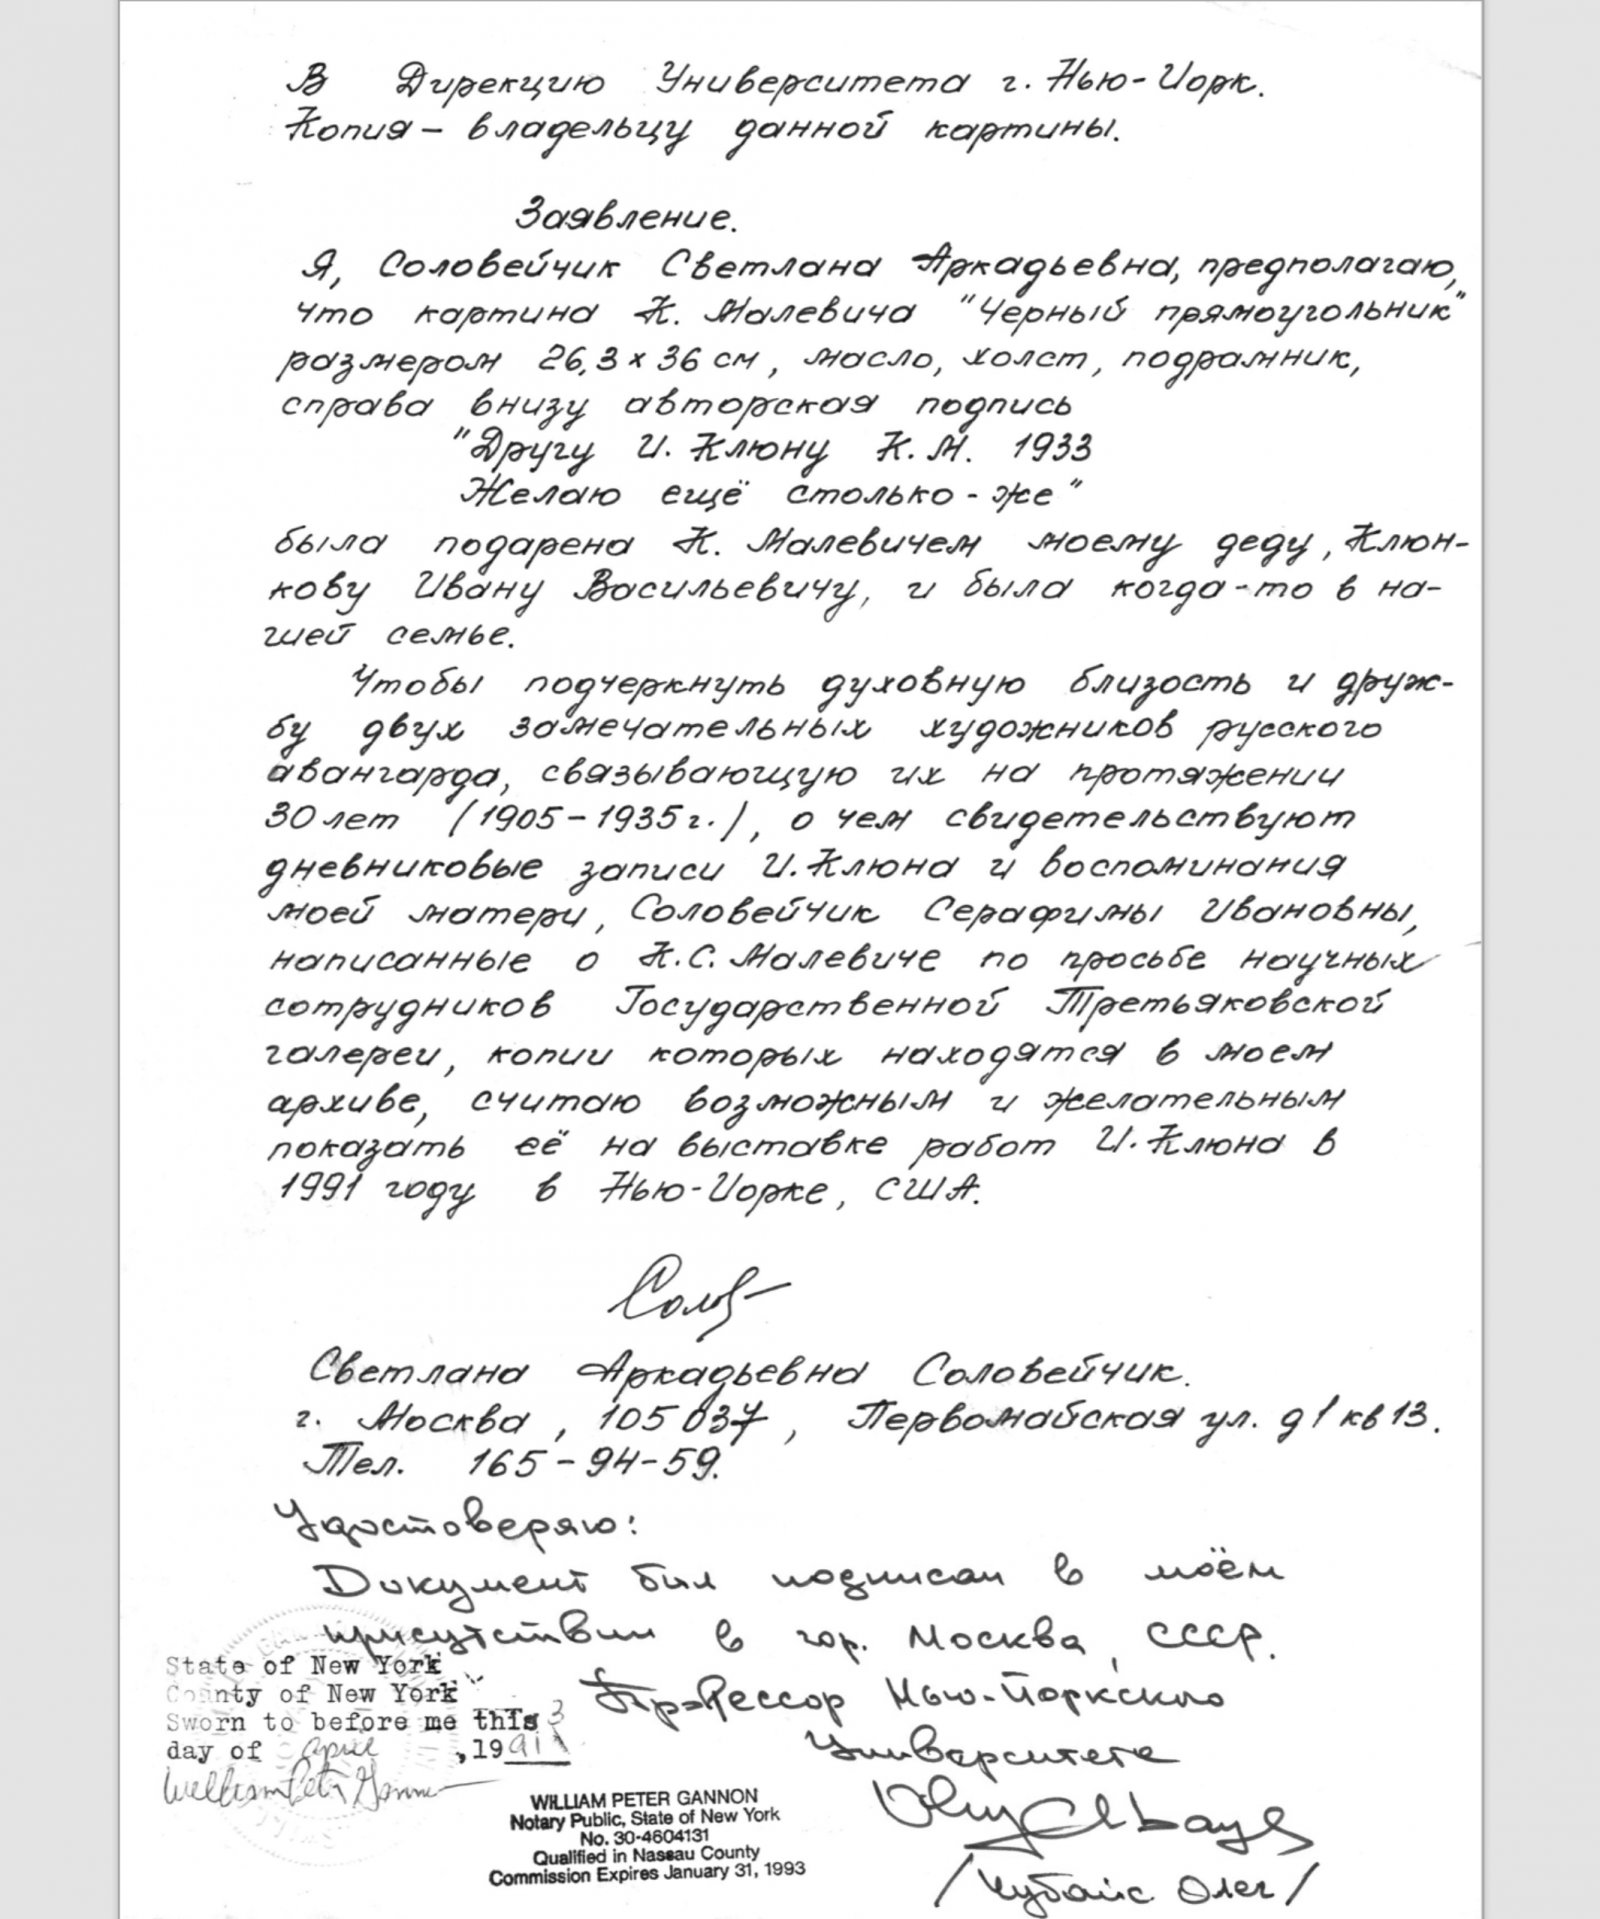 В Дирекцию Университета г. Нью-Иорк.
Копия – владельцу данной картины.
Заявление.
Я, Соловейчик Светлана Аркадьевна, предполагаю,
что картина К. Малевича "Черный прямоугольник"
размером 26,3 х 36 см, масло, холст, подрамник,
справа внизу авторская подпись
"Другу И. Клюну К. М. 1933
Желаю ещё столько-же"
была подарена К. Малевичем моему деду, Клюн-
кову Ивану Васильевичу, и была когда-то в на-
шей семье.
Чтобы подчеркнуть духовную близость и друж-
бу двух замечательных художников русского
авангарда, связывающую их на протяжении
30 лет (1905 – 1935 г.), о чем свидетельствуют
дневниковые записи И. Клюна и воспоминания
моей матери, Соловейчик Серафимы Ивановны,
написанные о К. С. Малевиче по просьбе научных
сотрудников Государственной Третьяковской
галереи, копии которых находятся в моем
архиве, считаю возможным и желательным
показать её на выставке работ И. Клюна в
1991 году в Нью-Иорке, США.
Светлана Аркадьевна Соловейчик.
г. Москва, 105037, Первомайская ул. д 1 кв 13.
Тел. 165-94-59.
Удостоверяю:
Документ был подписан в моём
присутствии в гор. Москва, СССР.
Профессор Нью-Йоркского
Университета
/Чубайс Олег/
State of New York
County of New York
Sworn to before me this 3
day of April, 1991
William Peter Gannon
WILLIAM PETER GANNON
Notary Public, State of New York
No. 30-4604131
Qualified in Nassau County
Commission Expires January 31, 1993